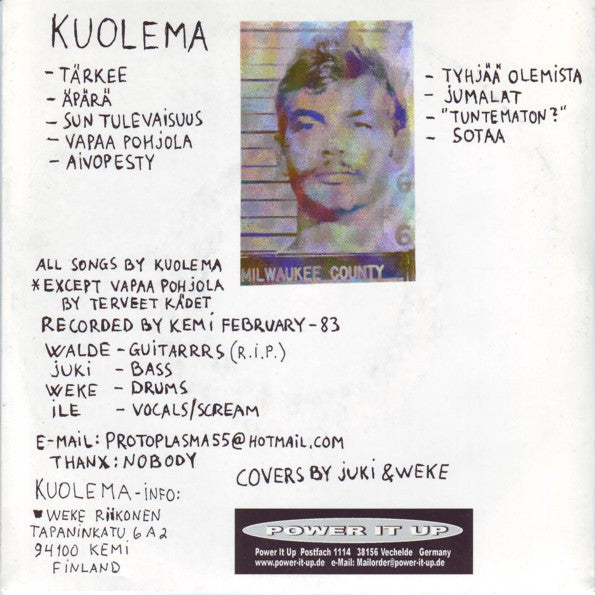 KUOLEMA
- TÄRKEE
- ÄPÄRÄ
- SUN TULEVAISUUS
- VAPAA POHJOLA
- AIVOPESTY
- TYHJÄÄ OLEMISTA
- JUMALAT
- "TUNTEMATON?"
- SOTAA
6
6
MILWAUKEE COUNTY
ALL SONGS BY KUOLEMA
*EXCEPT VAPAA POHJOLA
BY TERVEET KÄDET
RECORDED BY KEMI FEBRUARY-83
WALDE - GUITARRRS (R.I.P.)
JUKI - BASS
WEKE - DRUMS
ILE - VOCALS/SCREAM
E-MAIL: PROTOPLASMA55@HOTMAIL.COM
THANX: NOBODY
COVERS BY JUKI & WEKE
KUOLEMA-INFO:
WEKE RIIKONEN
TAPANINKATU 6 A 2
94100 KEMI
FINLAND
POWER IT UP
Power It Up Postfach 1114 38156 Vechelde Germany
www.power-it-up.de e-Mail: Mailorder@power-it-up.de